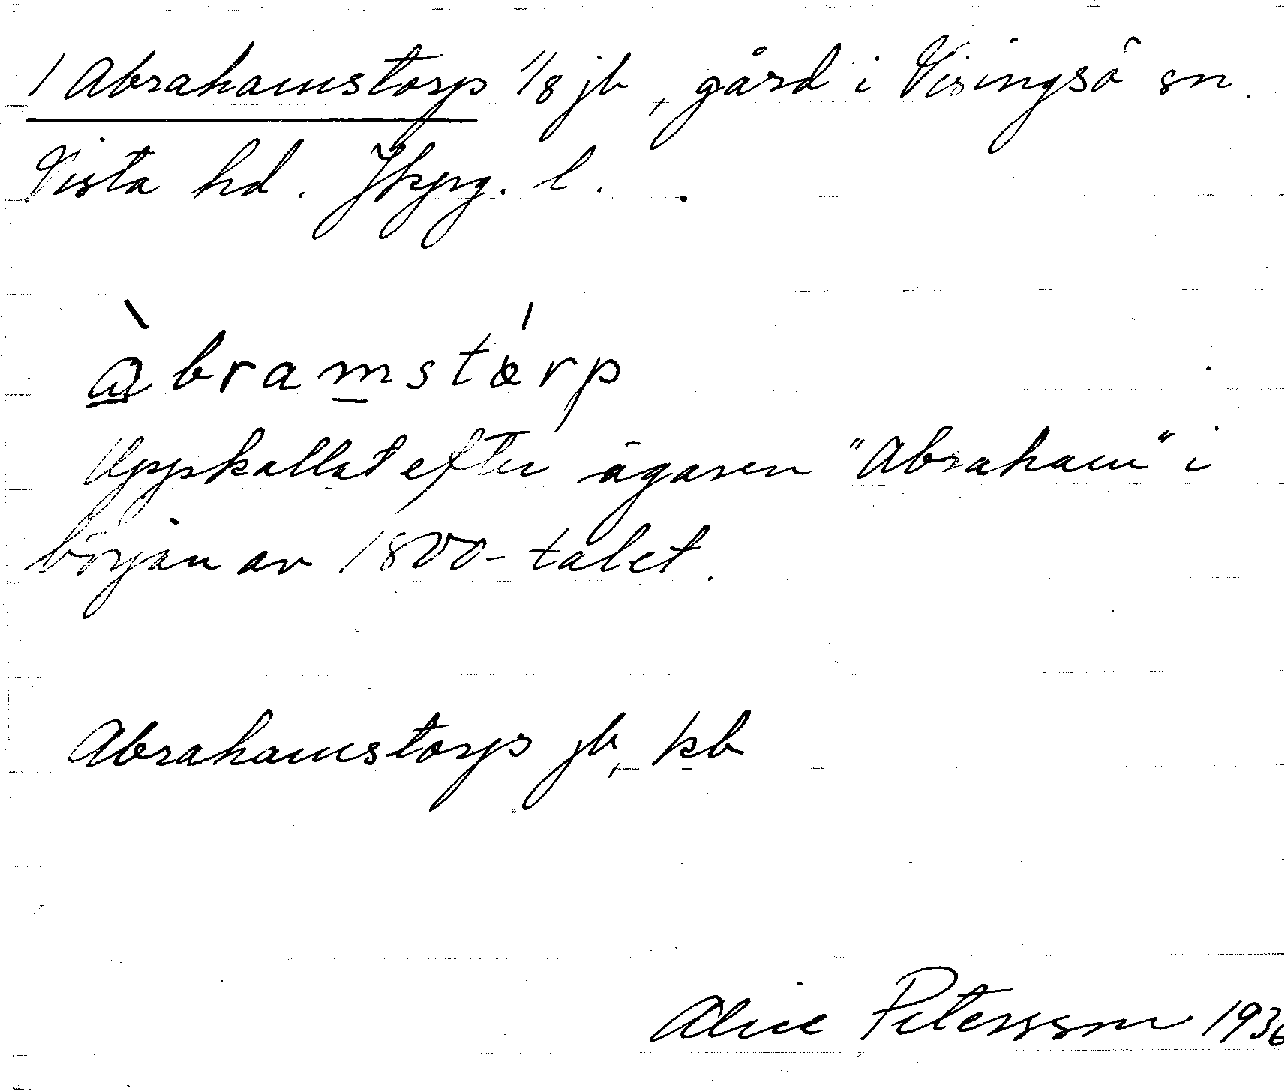 1 Abrahamstorp 1/8 jb, gård i Visingsö sn.
Vista hd. Jkpg. l.
àbramstórp
Uppkallat efter ägaren "Abraham" i
början av 1800-talet.
Abrahamstorp jb, kb
Alice Petersson 1936